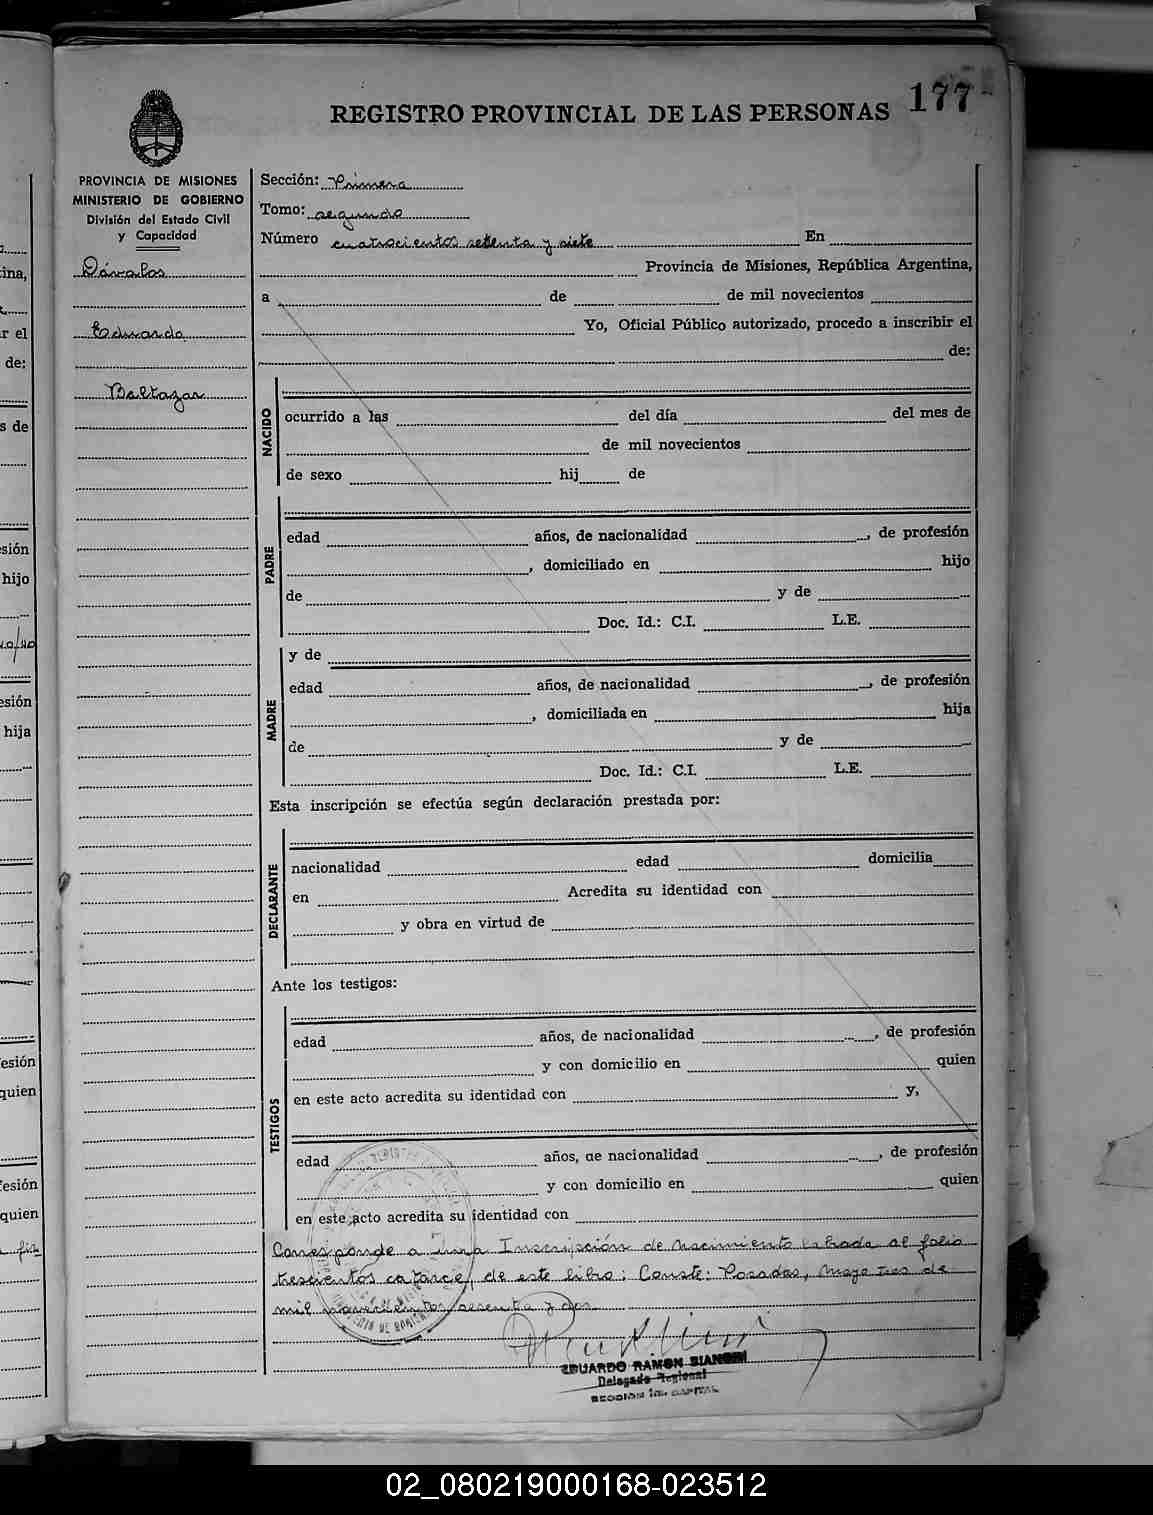 177
REGISTRO PROVINCIAL DE LAS PERSONAS
PROVINCIA DE MISIONES
MINISTERIO DE GOBIERNO
División del Estado Civil
y Capacidad
Dávalos
Eduardo
Baltazar
Sección: Primera
Tomo: segundo
Número cuatrocientos setenta y siete En
Provincia de Misiones, República Argentina,
a de de mil novecientos
Yo, Oficial Público autorizado, procedo a inscribir el
de:
NACIDO
ocurrido a las del día del mes de
de mil novecientos
de sexo hij de
PADRE
edad años, de nacionalidad , de profesión
, domiciliado en hijo
de y de
Doc. Id.: C.I. L.E.
MADRE
y de
edad años, de nacionalidad , de profesión
, domiciliada en hija
de y de
Doc. Id.: C.I. L.E.
Esta inscripción se efectúa según declaración prestada por:
DECLARANTE
nacionalidad edad domicilia
en Acredita su identidad con
y obra en virtud de
Ante los testigos:
TESTIGOS
edad años, de nacionalidad , de profesión
y con domicilio en quien
en este acto acredita su identidad con y,
edad años, de nacionalidad , de profesión
y con domicilio en quien
en este acto acredita su identidad con
Corresponde a una Inscripción de nacimiento labrada al folio
trescientos catorce, de este libro: Conste: Posadas, mayo tres de
mil novecientos sesenta y dos
EDUARDO RAMON BIANCHI
Delegado Regional
SECCION 1ra. CAPITAL
ina,
r el
de:
s de
sión
hijo
esión
hija
esión
quien
esión
quien
02_080219000168-023512